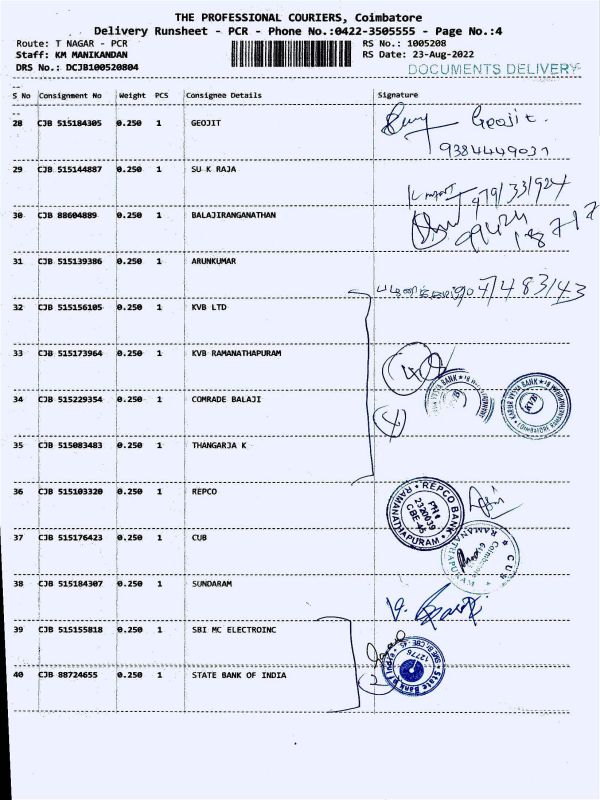 THE PROFESSIONAL COURIERS, Coimbatore
Delivery Runsheet - PCR - Phone No.:0422-3505555 - Page No.:4
Route: T NAGAR - PCR RS No.: 1005208
Staff: KM MANIKANDAN RS Date: 23-Aug-2022
DRS No.: DCJB100520804 DOCUMENTS DELIVERY
S No Consignment No Weight PCS Consignee Details Signature
28 CJB 515184305 0.250 1 GEOJIT Geojit.
9384449031
29 CJB 515144887 0.250 1 SU K RAJA
9791331924
30 CJB 88604889 0.250 1 BALAJIRANGANATHAN
99424
18717
31 CJB 515139386 0.250 1 ARUNKUMAR
9047483143
32 CJB 515156105 0.250 1 KVB LTD
33 CJB 515173964 0.250 1 KVB RAMANATHAPURAM
34 CJB 515229354 0.250 1 COMRADE BALAJI 4
35 CJB 515083483 0.250 1 THANGARJA K
36 CJB 515103320 0.250 1 REPCO
REPCO BANK
RAMANATHAPURAM
PH:
2320039
CBE-45
37 CJB 515176423 0.250 1 CUB
CUB
RAMANATHAPURAM
Coimbatore
38 CJB 515184307 0.250 1 SUNDARAM
39 CJB 515155818 0.250 1 SBI MC ELECTROINC
12776
40 CJB 88724655 0.250 1 STATE BANK OF INDIA 2
State Bank of